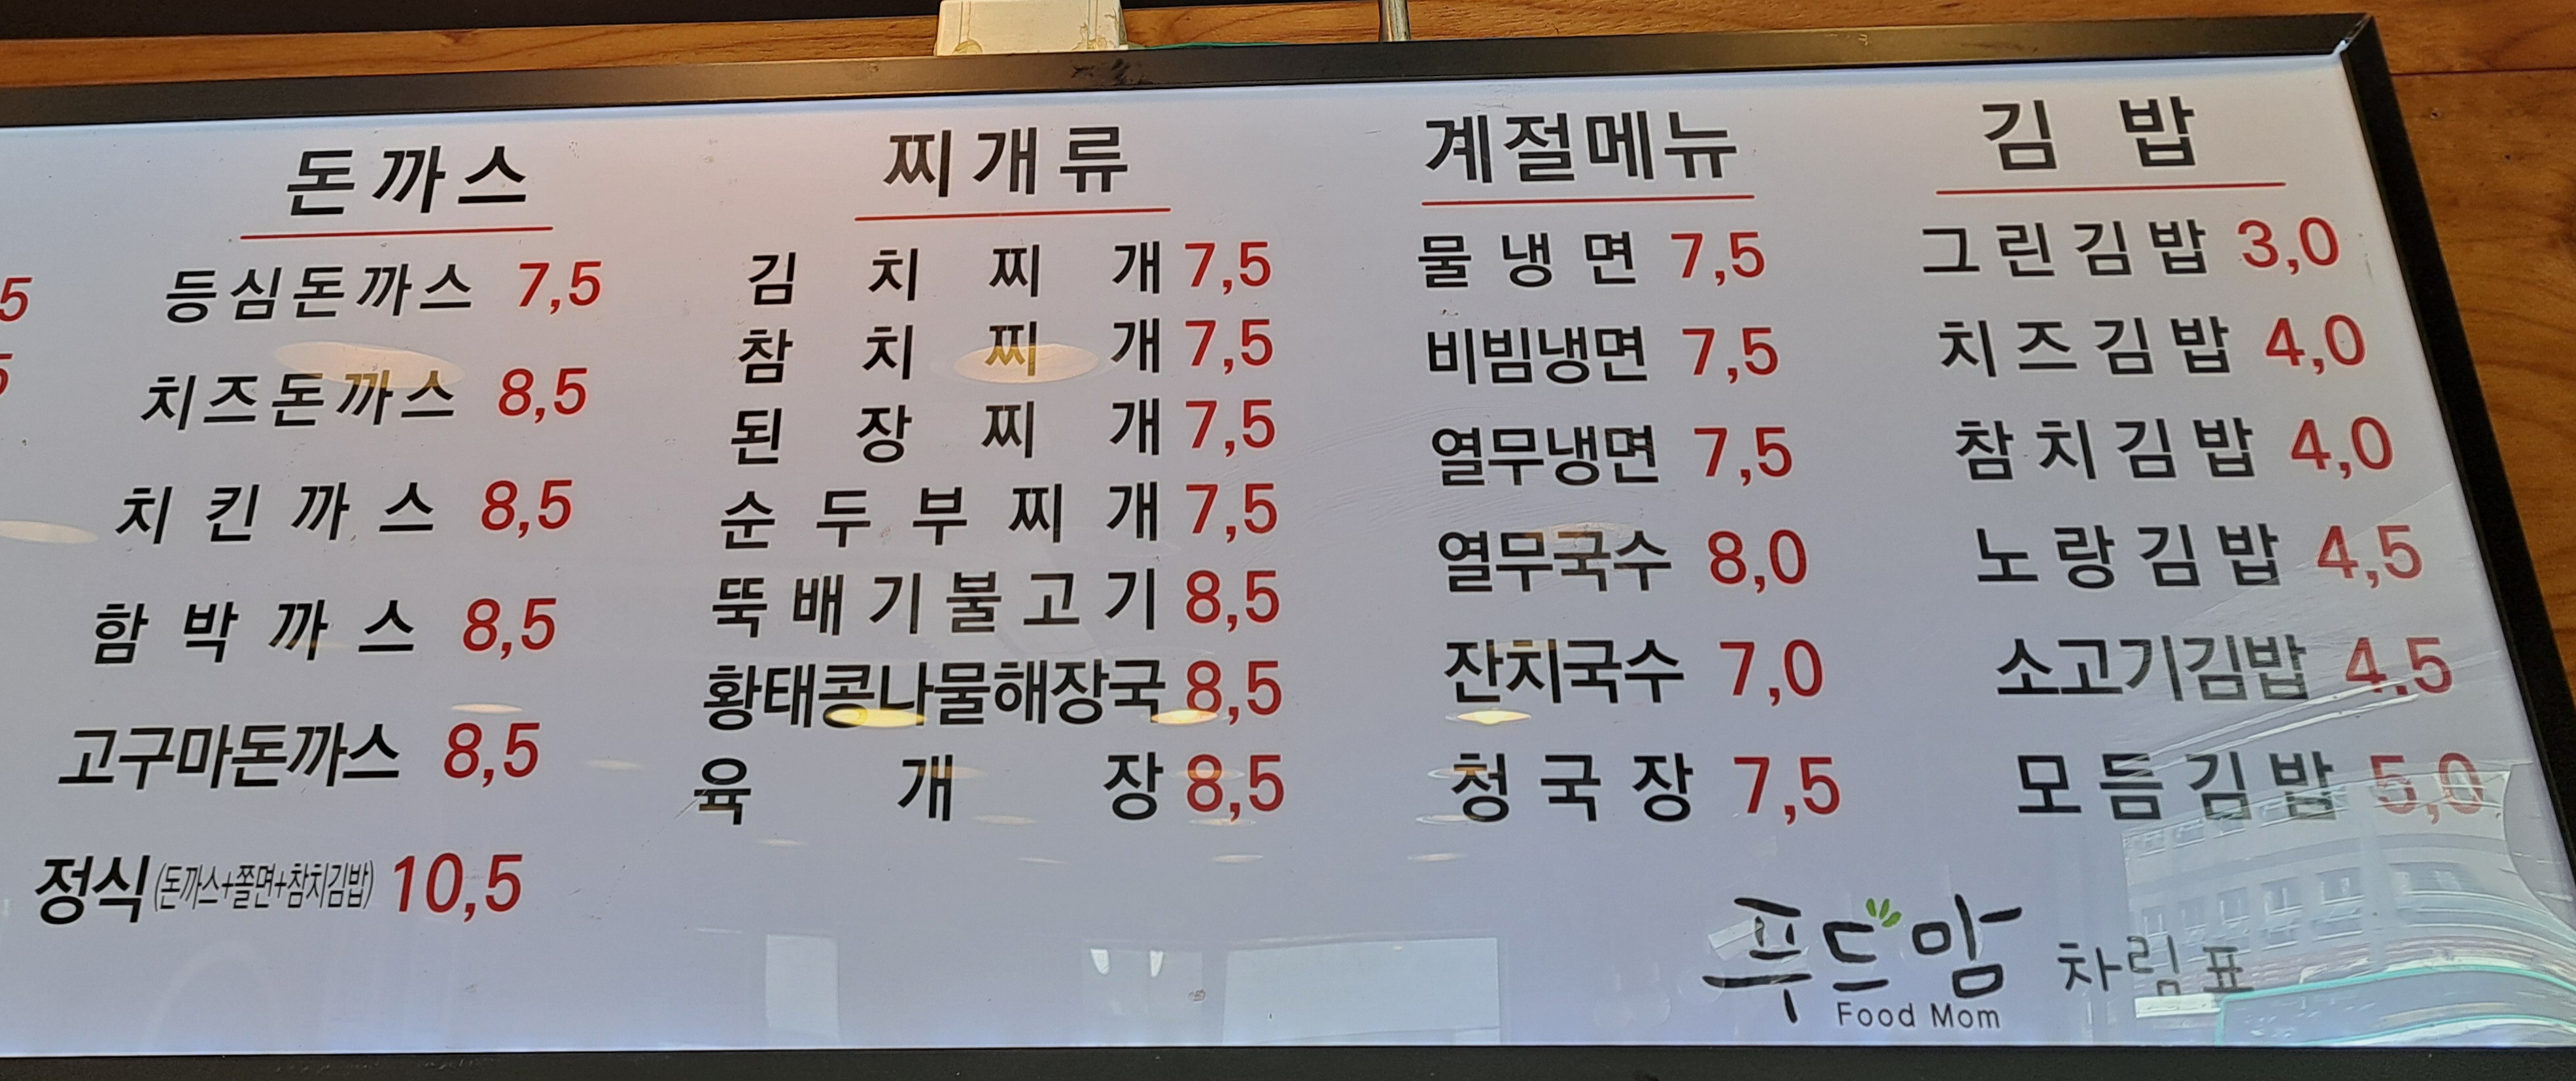 5
5
돈까스
등심돈까스 7,5
치즈돈까스 8,5
치킨까스 8,5
함박까스 8,5
고구마돈까스 8,5
정식(돈까스+쫄면+참치김밥) 10,5
찌개류
김치찌개 7,5
참치찌개 7,5
된장찌개 7,5
순두부찌개 7,5
뚝배기불고기 8,5
황태콩나물해장국 8,5
육개장 8,5
계절메뉴
물냉면 7,5
비빔냉면 7,5
열무냉면 7,5
열무국수 8,0
잔치국수 7,0
청국장 7,5
김밥
그린김밥 3,0
치즈김밥 4,0
참치김밥 4,0
노랑김밥 4,5
소고기김밥 4.5
모듬김밥 5,0
푸드맘 차림표
Food Mom